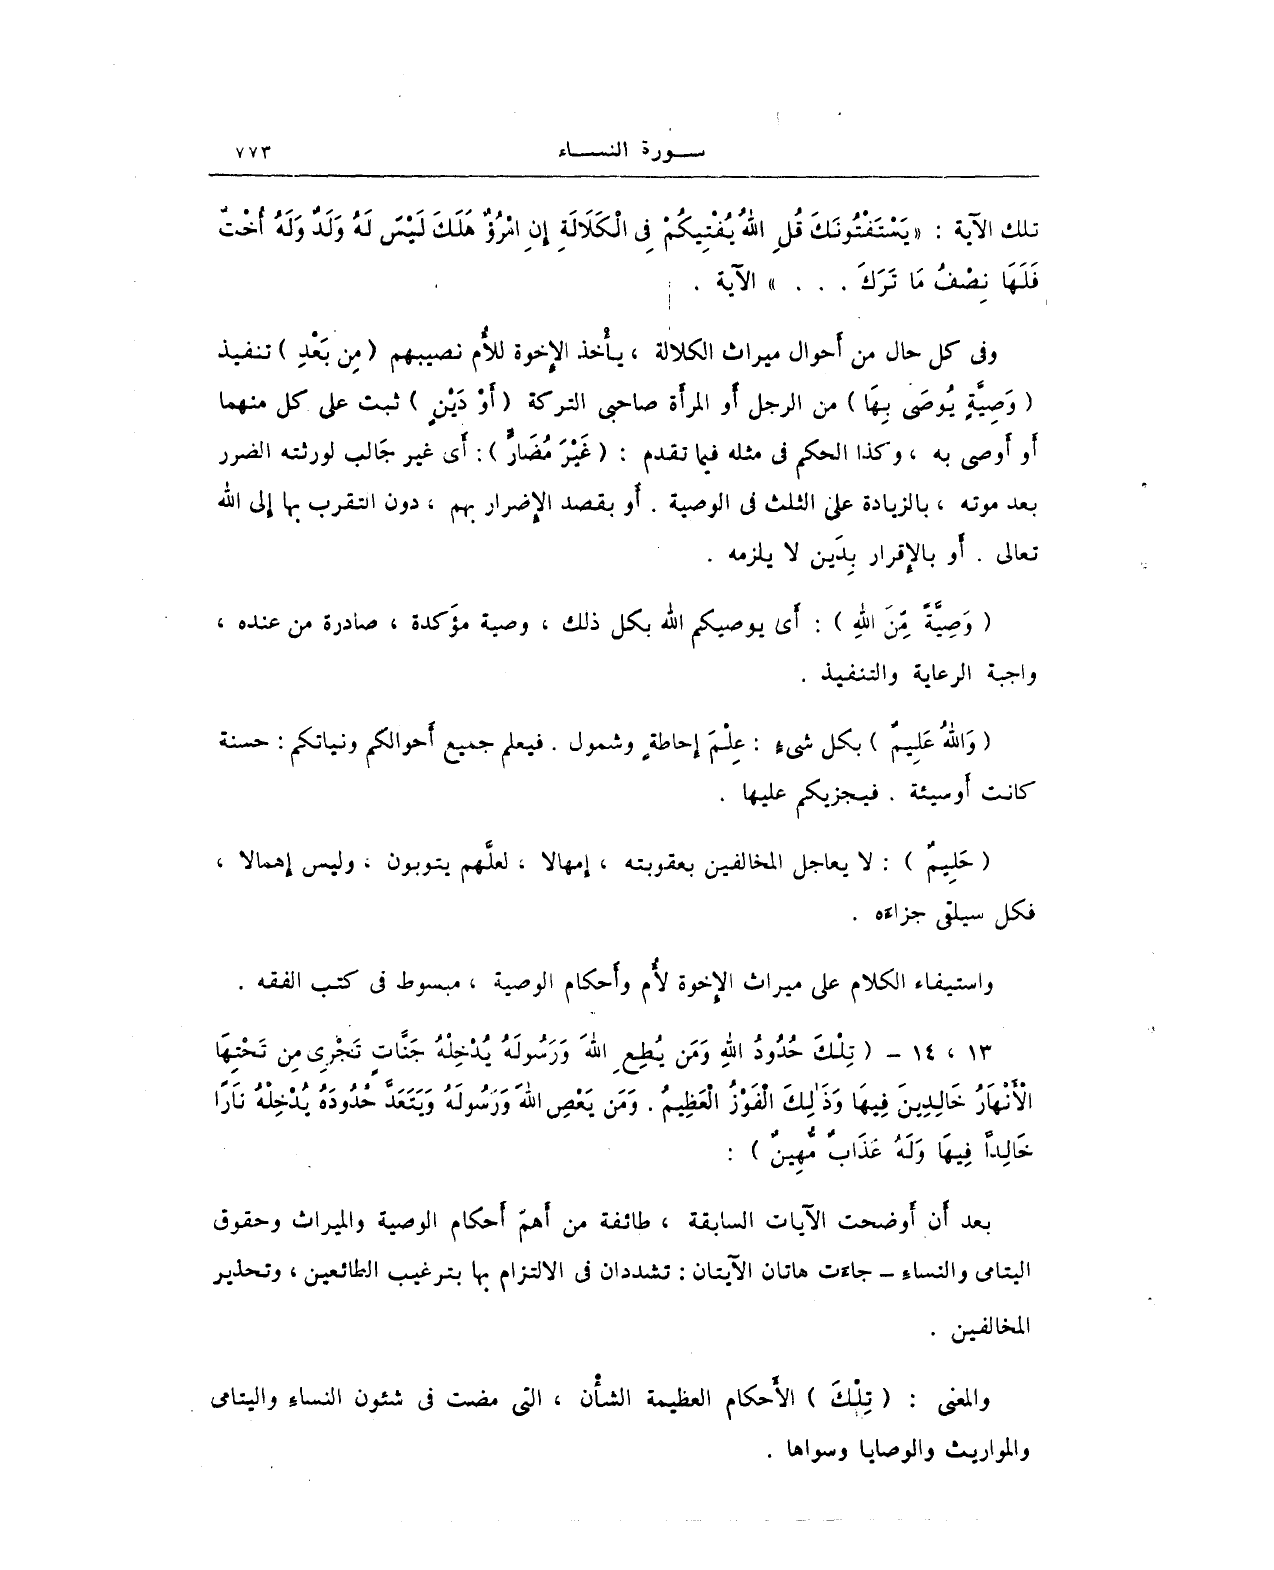 سورة النساء ٧٧٣
تلك الآية : «يَسْتَفْتُونَكَ قُلِ اللهُ يُفْتِيكُمْ فِى الْكَلَالَةِ إِنِ امْرُؤٌ هَلَكَ لَيْسَ لَهُ وَلَدٌ وَلَهُ أُخْتٌ
فَلَهَا نِصْفُ مَا تَرَكَ . . . » الآية .
وفى كل حال من أحوال ميراث الكلالة ، يأخذ الإخوة للأُم نصيبهم (مِن بَعْدِ) تنفيذ
(وَصِيَّةٍ يُوصَى بِهَا) من الرجل أو المرأة صاحبى التركة (أَوْ دَيْنٍ) ثبت على كل منهما
أو أوصى به ، وكذا الحكم فى مثله فيما تقدم : (غَيْرَ مُضَارٍّ): أى غير جَالب لورثته الضرر
بعد موته ، بالزيادة على الثلث فى الوصية . أو بقصد الإضرار بهم ، دون التقرب بها إلى الله
تعالى . أو بالإقرار بِدَين لا يلزمه .
(وَصِيَّةً مِّنَ اللهِ) : أى يوصيكم الله بكل ذلك ، وصية مؤَكدة ، صادرة من عنده ،
واجبة الرعاية والتنفيذ .
(وَاللهُ عَلِيمٌ) بكل شىءٍ : عِلْمَ إحاطةٍ وشمول . فيعلم جميع أحوالكم ونياتكم : حسنة
كانت أو سيئة . فيجزيكم عليها .
(حَلِيمٌ) : لا يعاجل المخالفين بعقوبته ، إمهالا ، لعلَّهم يتوبون ، وليس إهمالا ،
فكل سيلقى جزاءه .
واستيفاء الكلام على ميراث الإخوة لأُم وأحكام الوصية ، مبسوط فى كتب الفقه .
١٣ ، ١٤ – (تِلْكَ حُدُودُ اللهِ وَمَن يُطِعِ اللهَ وَرَسُولَهُ يُدْخِلْهُ جَنَّاتٍ تَجْرِى مِن تَحْتِهَا
الْأَنْهَارُ خَالِدِينَ فِيهَا وَذَٰلِكَ الْفَوْزُ الْعَظِيمُ . وَمَن يَعْصِ اللهَ وَرَسُولَهُ وَيَتَعَدَّ حُدُودَهُ يُدْخِلْهُ نَارًا
خَالِداً فِيهَا وَلَهُ عَذَابٌ مُّهِينٌ) :
بعد أن أوضحت الآيات السابقة ، طائفة من أهمّ أحكام الوصية والميراث وحقوق
اليتامى والنساءِ – جاءَت هاتان الآيتان : تشددان فى الالتزام بها بترغيب الطائعين ، وتحذير
المخالفين .
والمعنى : (تِلْكَ) الأحكام العظيمة الشأن ، التى مضت فى شئون النساءِ واليتامى
والمواريث والوصايا وسواها .